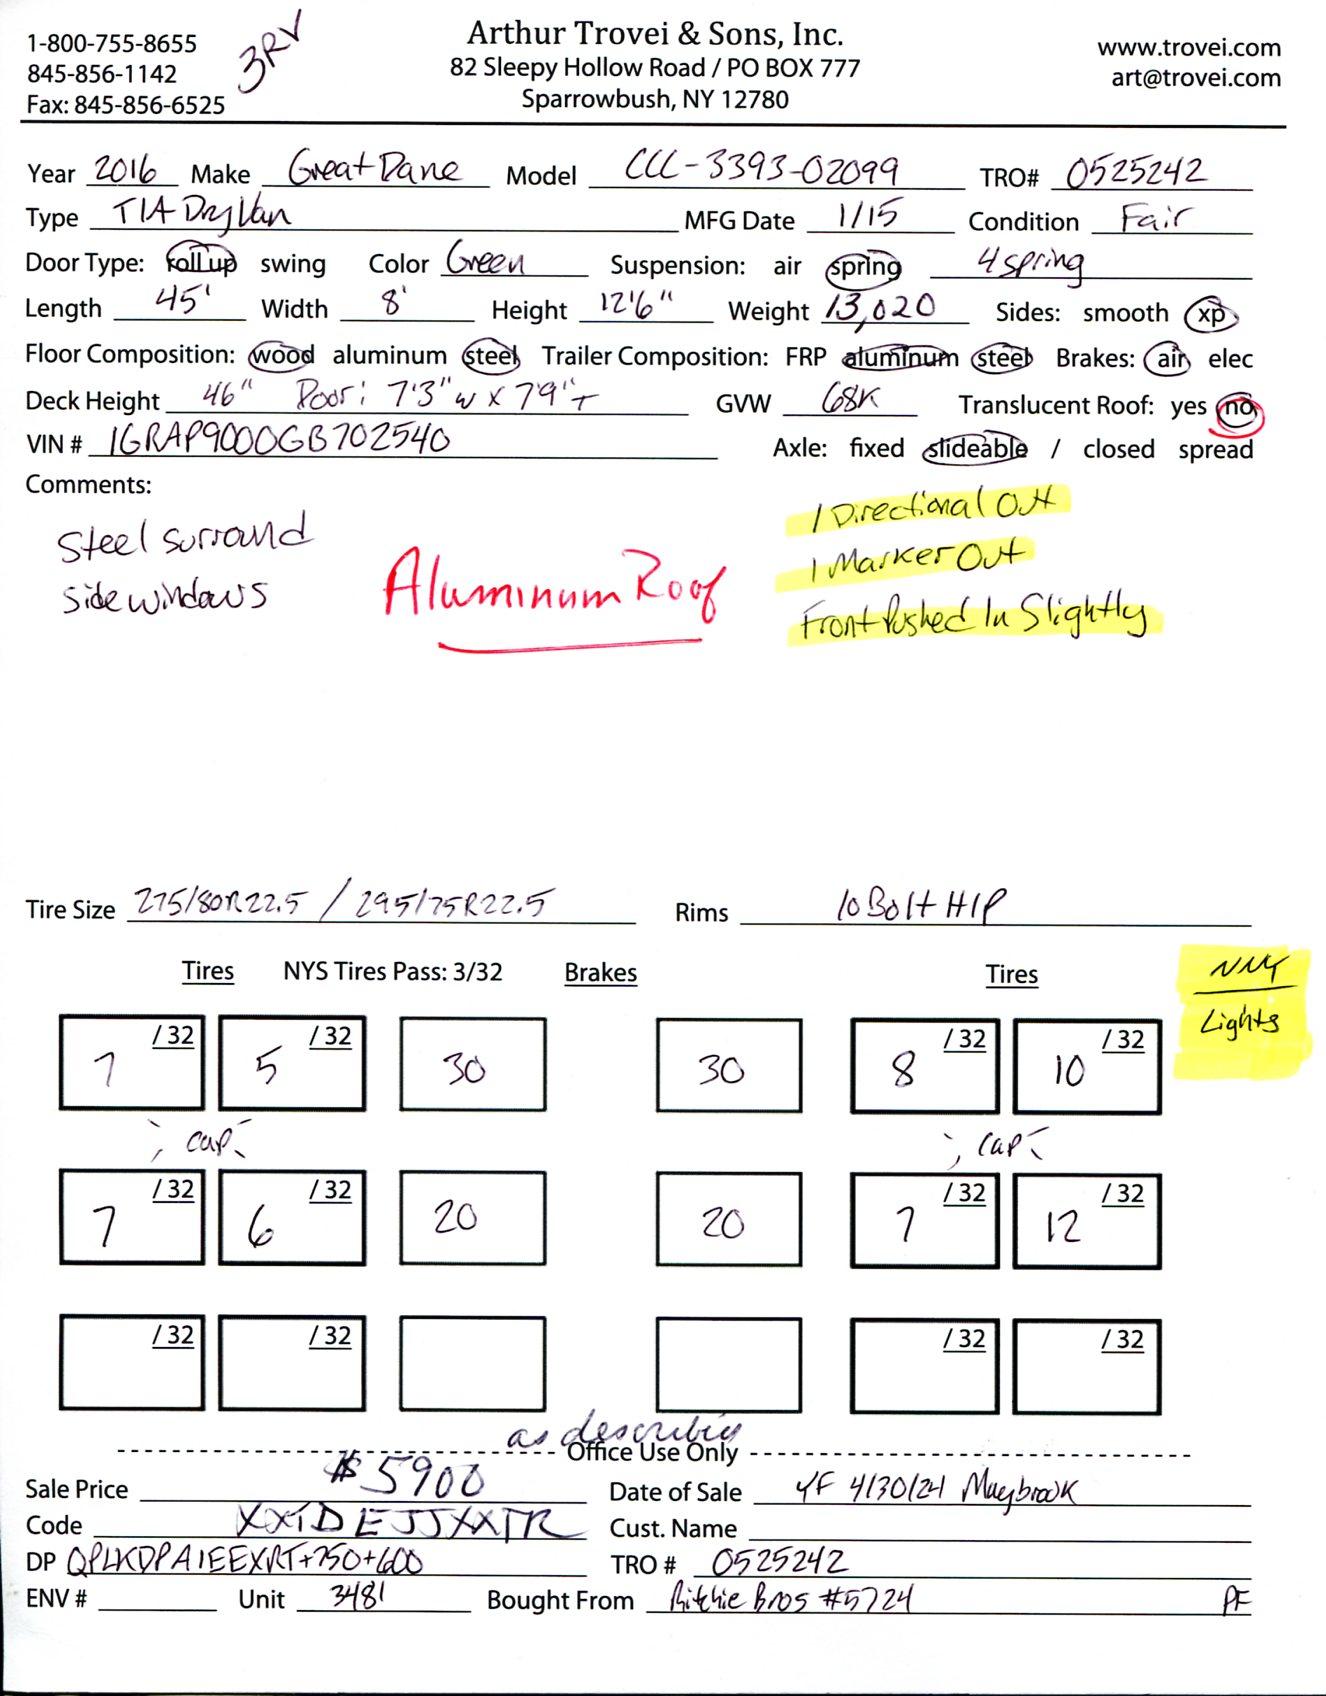 1-800-755-8655
845-856-1142
Fax: 845-856-6525
3RV
Arthur Trovei & Sons, Inc.
82 Sleepy Hollow Road / PO BOX 777
Sparrowbush, NY 12780
www.trovei.com
art@trovei.com
Year 2016 Make Great Dane Model CCC-3393-02099 TRO# 0525242
Type T/A Dry Van MFG Date 1/15 Condition Fair
Door Type: roll up swing Color Green Suspension: air spring 4 spring
Length 45' Width 8' Height 12'6" Weight 13,020 Sides: smooth xp
Floor Composition: wood aluminum steel Trailer Composition: FRP aluminum steel Brakes: air elec
Deck Height 46" Door: 7'3"w x 7'9"T GVW 68K Translucent Roof: yes no
VIN # 1GRAP9000GB702540 Axle: fixed slideable / closed spread
Comments:
Steel surround
side windows
Aluminum Roof
1 Directional Out
1 Marker Out
Front Pushed In Slightly
Tire Size 275/80R22.5 / 295/75R22.5 Rims 10 Bolt H/P
Tires NYS Tires Pass: 3/32 Brakes Tires
NMY
Lights
7 /32 5 /32 30 30 8 /32 10 /32
cap cap
7 /32 6 /32 20 20 7 /32 12 /32
/32 /32 /32 /32
as describing
Office Use Only
Sale Price $5900 Date of Sale YF 4/30/24 Maybrook
Code XXTDEJJXXTR Cust. Name
DP QPLKDPAIEEXRT+750+600 TRO # 0525242
ENV # Unit 3481 Bought From Ritchie Bros #5724 PF